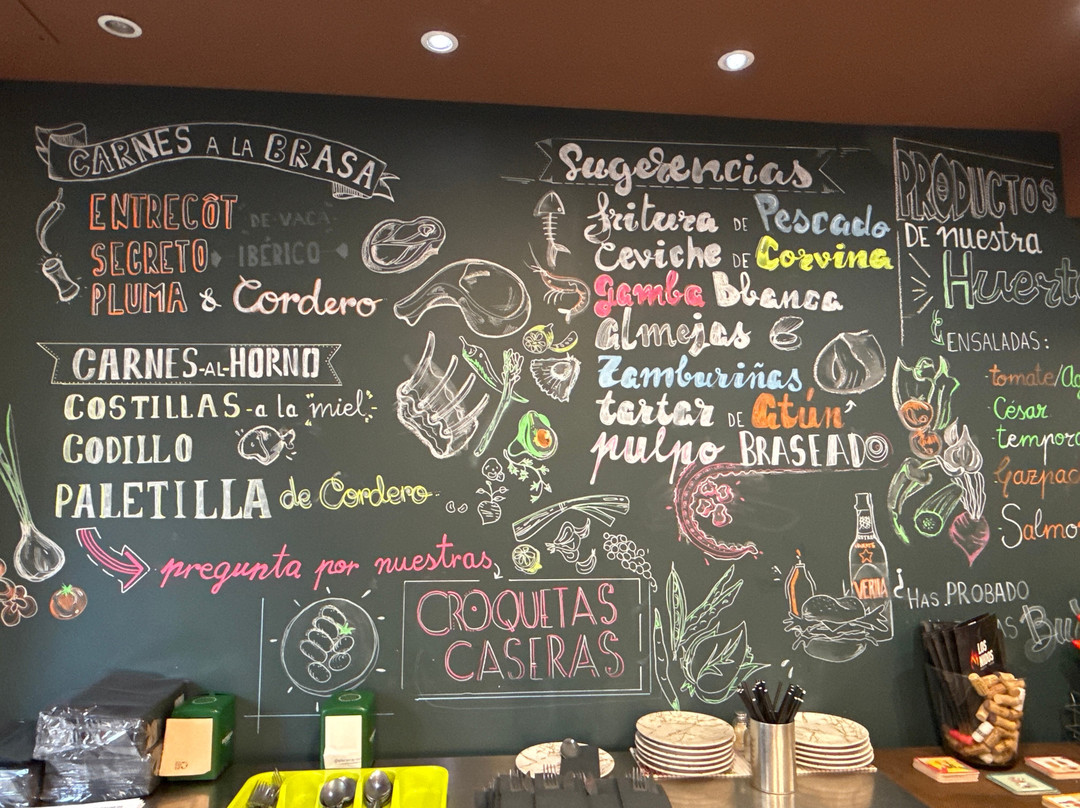 CARNES A LA BRASA
ENTRECÔT DE VACA
SECRETO IBÉRICO
PLUMA & Cordero
CARNES-AL-HORNO
COSTILLAS-a la "miel"
CODILLO
PALETILLA de Cordero
pregunta por nuestras
CROQUETAS
CASERAS
Sugerencias
fritura DE Pescado
Ceviche DE Corvina
gamba Bblanca
almejas
Zamburiñas
tartar DE Atún
pulpo BRASEADO
VERNA
PRODUCTOS
DE nuestra
Huert
ENSALADAS:
tomate/Ag
César
tempora
Gazpac
Salmo
¿HAS PROBADO
AS Bu
LOS